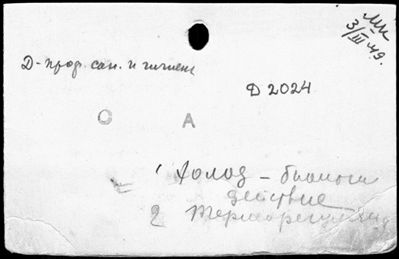 Ми
3/III 49.
Д-проф. сан. и гигиен
Д 2024
О А
1 Холод – биологи
действие
2 Терморегуляция